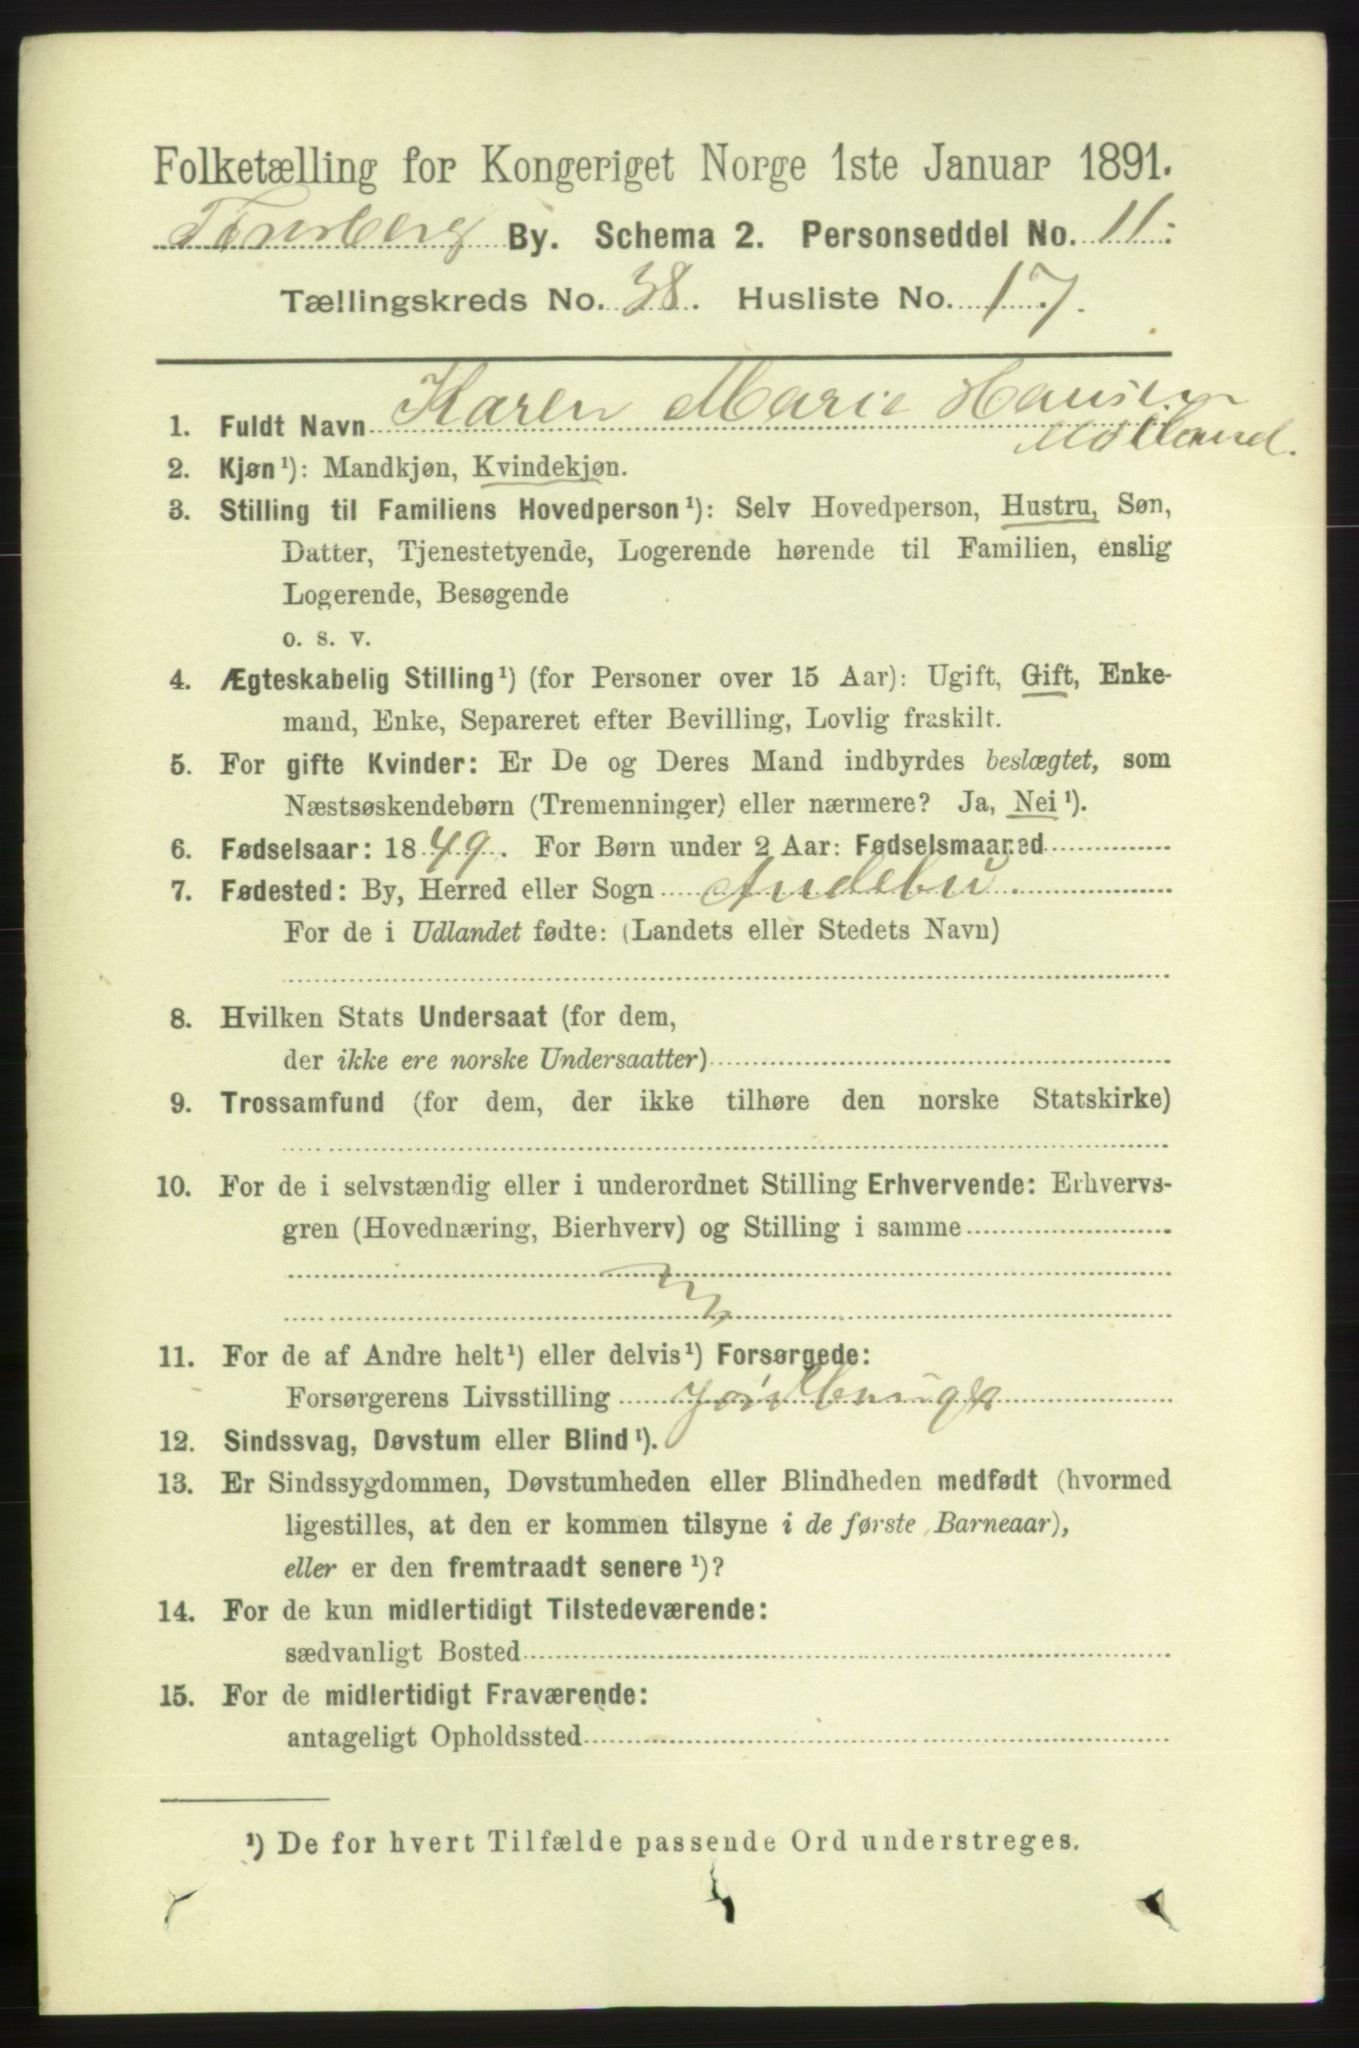 Folketælling for Kongeriget Norge 1ste Januar 1891.
Tønsberg By. Schema 2. Personseddel No. 11.
Tællingskreds No. 38. Husliste No. 17.
1. Fuldt Navn Karen Marie Hansen
Mølland.
2. Kjøn¹): Mandkjøn, Kvindekjøn.
3. Stilling til Familiens Hovedperson¹): Selv Hovedperson, Hustru, Søn,
Datter, Tjenestetyende, Logerende hørende til Familien, enslig
Logerende, Besøgende
o. s. v.
4. Ægteskabelig Stilling¹) (for Personer over 15 Aar): Ugift, Gift, Enke-
mand, Enke, Separeret efter Bevilling, Lovlig fraskilt.
5. For gifte Kvinder: Er De og Deres Mand indbyrdes beslægtet, som
Næstsøskendebørn (Tremenninger) eller nærmere? Ja, Nei¹).
6. Fødselsaar: 1849. For Børn under 2 Aar: Fødselsmaaned
7. Fødested: By, Herred eller Sogn Andebu.
For de i Udlandet fødte: (Landets eller Stedets Navn)
8. Hvilken Stats Undersaat (for dem,
der ikke ere norske Undersaatter)
9. Trossamfund (for dem, der ikke tilhøre den norske Statskirke)
10. For de i selvstændig eller i underordnet Stilling Erhvervende: Erhvervs-
gren (Hovednæring, Bierhverv) og Stilling i samme
11. For de af Andre helt¹) eller delvis¹) Forsørgede:
Forsørgerens Livsstilling
12. Sindssvag, Døvstum eller Blind¹).
13. Er Sindssygdommen, Døvstumheden eller Blindheden medfødt (hvormed
ligestilles, at den er kommen tilsyne i de første Barneaar),
eller er den fremtraadt senere¹)?
14. For de kun midlertidigt Tilstedeværende:
sædvanligt Bosted
15. For de midlertidigt Fraværende:
antageligt Opholdssted
¹) De for hvert Tilfælde passende Ord understreges.